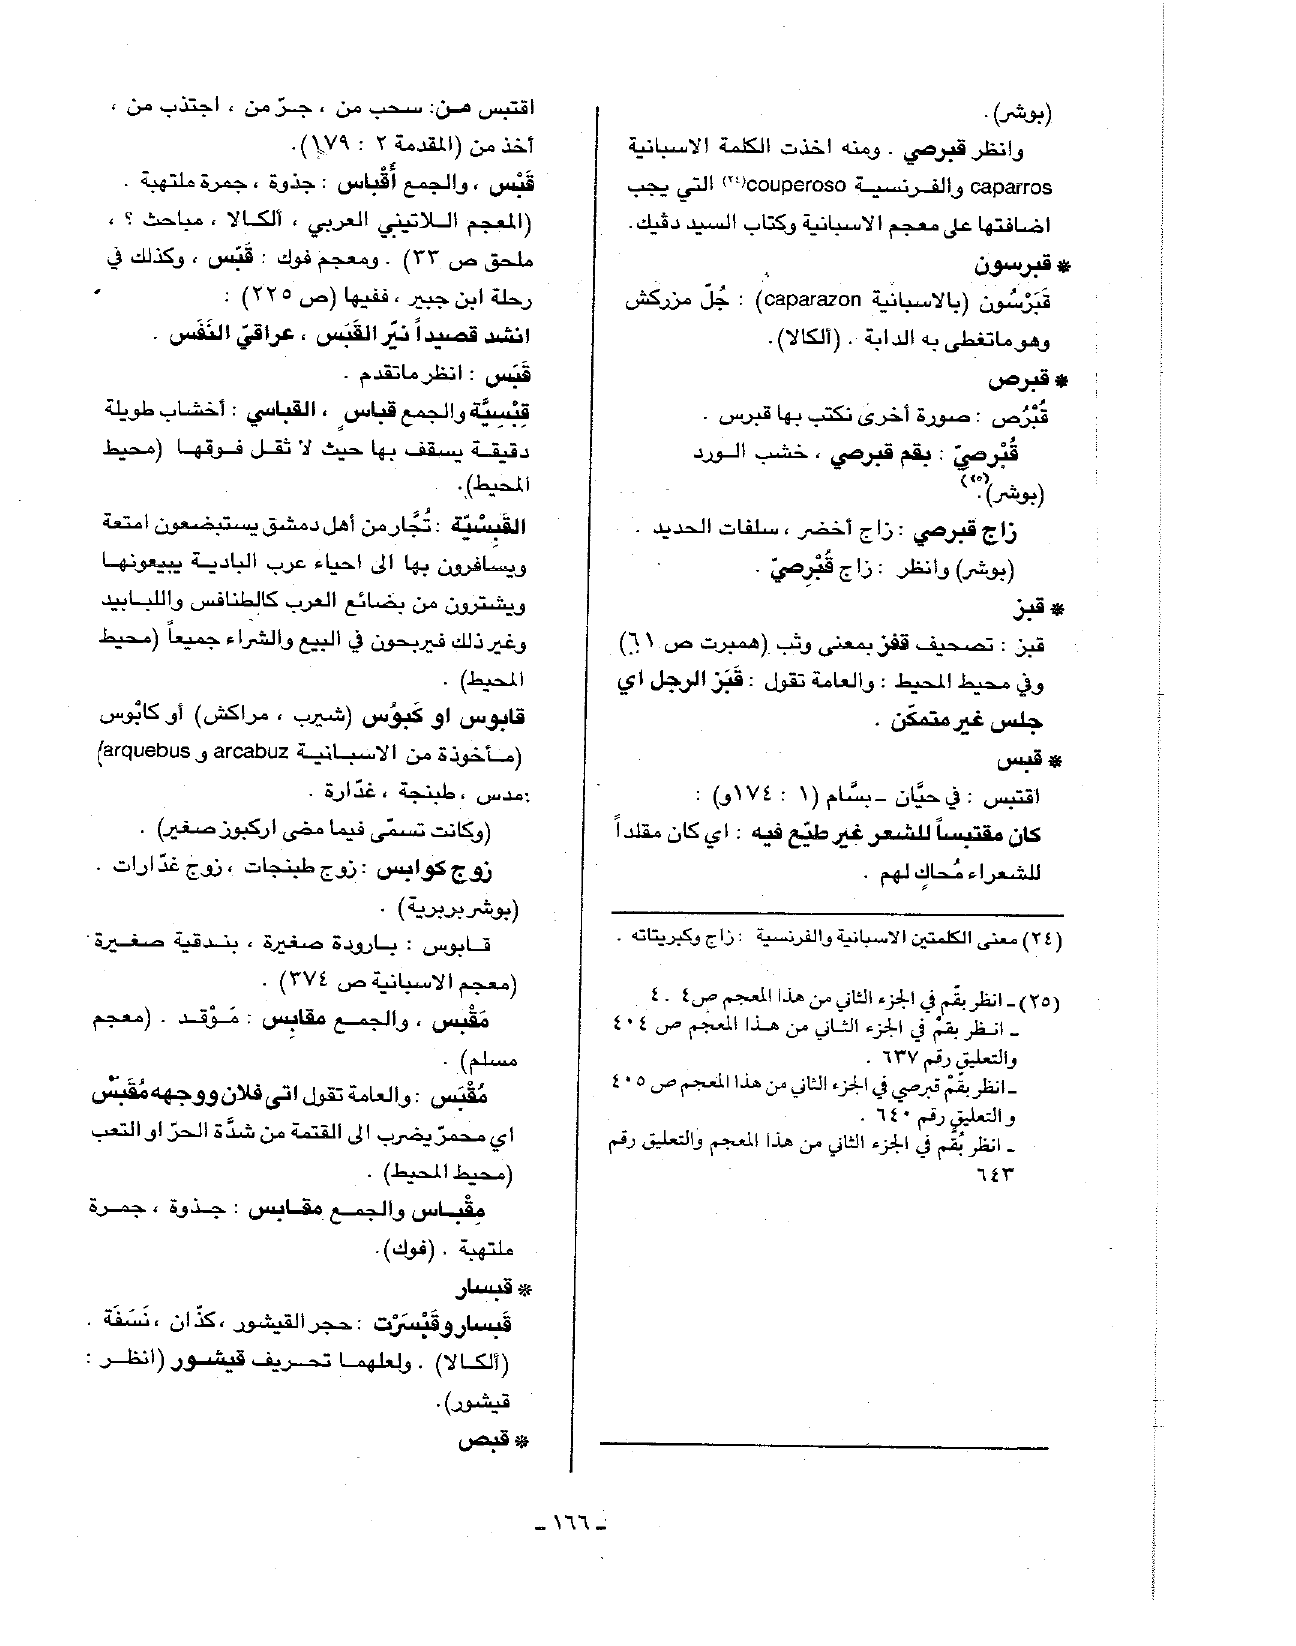 (بوشر).
وانظر قبرصي . ومنه اخذت الكلمة الاسبانية
caparros والفرنسية couperoso(٢٤) التي يجب
اضافتها على معجم الاسبانية وكتاب السيد دڤيك.
* قبرسون
قَبَرْسُون (بالاسبانية caparazon) : جُلّ مزركش
وهو ماتغطى به الدابة . (ألكالا).
* قبرص
قُبْرُص : صورة أخرى نكتب بها قبرس .
قُبْرصيّ : بقم قبرصي ، خشب الورد
(بوشر).(٢٥)
زاج قبرصي : زاج أخضر ، سلفات الحديد .
(بوشر) وانظر : زاج قُبْرصيّ .
* قبز
قبز : تصحيف قفز بمعنى وثب (همبرت ص ٦١)
وفي محيط المحيط : والعامة تقول : قَبَز الرجل اي
جلس غير متمكّن .
* قبس
اقتبس : في حيَّان - بسَّام (١ : ١٧٤و) :
كان مقتبساً للشعر غير طيّع فيه : اي كان مقلداً
للشعراء مُحاكٍ لهم .
(٢٤) معنى الكلمتين الاسبانية والفرنسية : زاج وكبريتاته .
(٢٥) - انظر بقّم في الجزء الثاني من هذا المعجم ص٤٠٤
- انظر بقمْ في الجزء الثاني من هذا المعجم ص ٤٠٤
والتعليق رقم ٦٣٧ .
- انظر بقّمْ قبرصي في الجزء الثاني من هذا المعجم ص ٤٠٥
والتعليق رقم ٦٤٠ .
- انظر بُقّم في الجزء الثاني من هذا المعجم والتعليق رقم
٦٤٣
اقتبس من: سحب من ، جرّ من ، اجتذب من ،
أخذ من (المقدمة ٢ : ١٧٩).
قَبْس ، والجمع أَقْباس : جذوة ، جمرة ملتهبة .
(المعجم اللاتيني العربي ، ألكالا ، مباحث ؟ ،
ملحق ص ٣٣) . ومعجم فوك : قَبْس ، وكذلك في
رحلة ابن جبير ، ففيها (ص ٢٢٥) :
انشد قصيداً نيّر القَبَس ، عراقيّ النَفَس .
قَبَس : انظر ماتقدم .
قِبْسِيَّة والجمع قباسٍ ، القباسي : أخشاب طويلة
دقيقة يسقف بها حيث لا ثقل فوقها (محيط
المحيط).
القَبِسْيّة : تُجَّار من أهل دمشق يستبضعون امتعة
ويسافرون بها الى احياء عرب البادية يبيعونها
ويشترون من بضائع العرب كالطنافس واللبابيد
وغير ذلك فيربحون في البيع والشراء جميعاً (محيط
المحيط) .
قابوس او كَبوُس (شيرب ، مراكش) أو كابُوس
(مأخوذة من الاسبانية arcabuz و arquebus)
:مدس ، طبنجة ، غدّارة .
(وكانت تسمّى فيما مضى اركبوز صغير) .
زوج كوابس : زوج طبنجات ، زوج غدّارات .
(بوشر بربرية) .
قابوس : بارودة صغيرة ، بندقية صغيرة
(معجم الاسبانية ص ٣٧٤) .
مَقْبِس ، والجمع مقابِس : مَوْقد . (معجم
مسلم) .
مُقْبَس : والعامة تقول اتى فلان ووجهه مُقَبّسْ
اي محمرّ يضرب الى القتمة من شدَّة الحرّ او التعب
(محيط المحيط) .
مِقْبِاس والجمع مقابس : جذوة ، جمرة
ملتهبة . (فوك).
* قبسار
قَبسار وقَبْسَرْت : حجر القيشور ، كذّان ، نَسَفَة .
(ألكالا) . ولعلهما تحريف قيشور (انظر :
قيشور).
* قبص
- ١٦٦ -